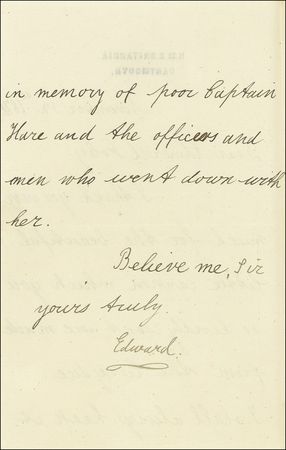 in memory of poor Captain
Hare and the officers and
men who went down with
her.
Believe me, Sir
yours truly
Edward.